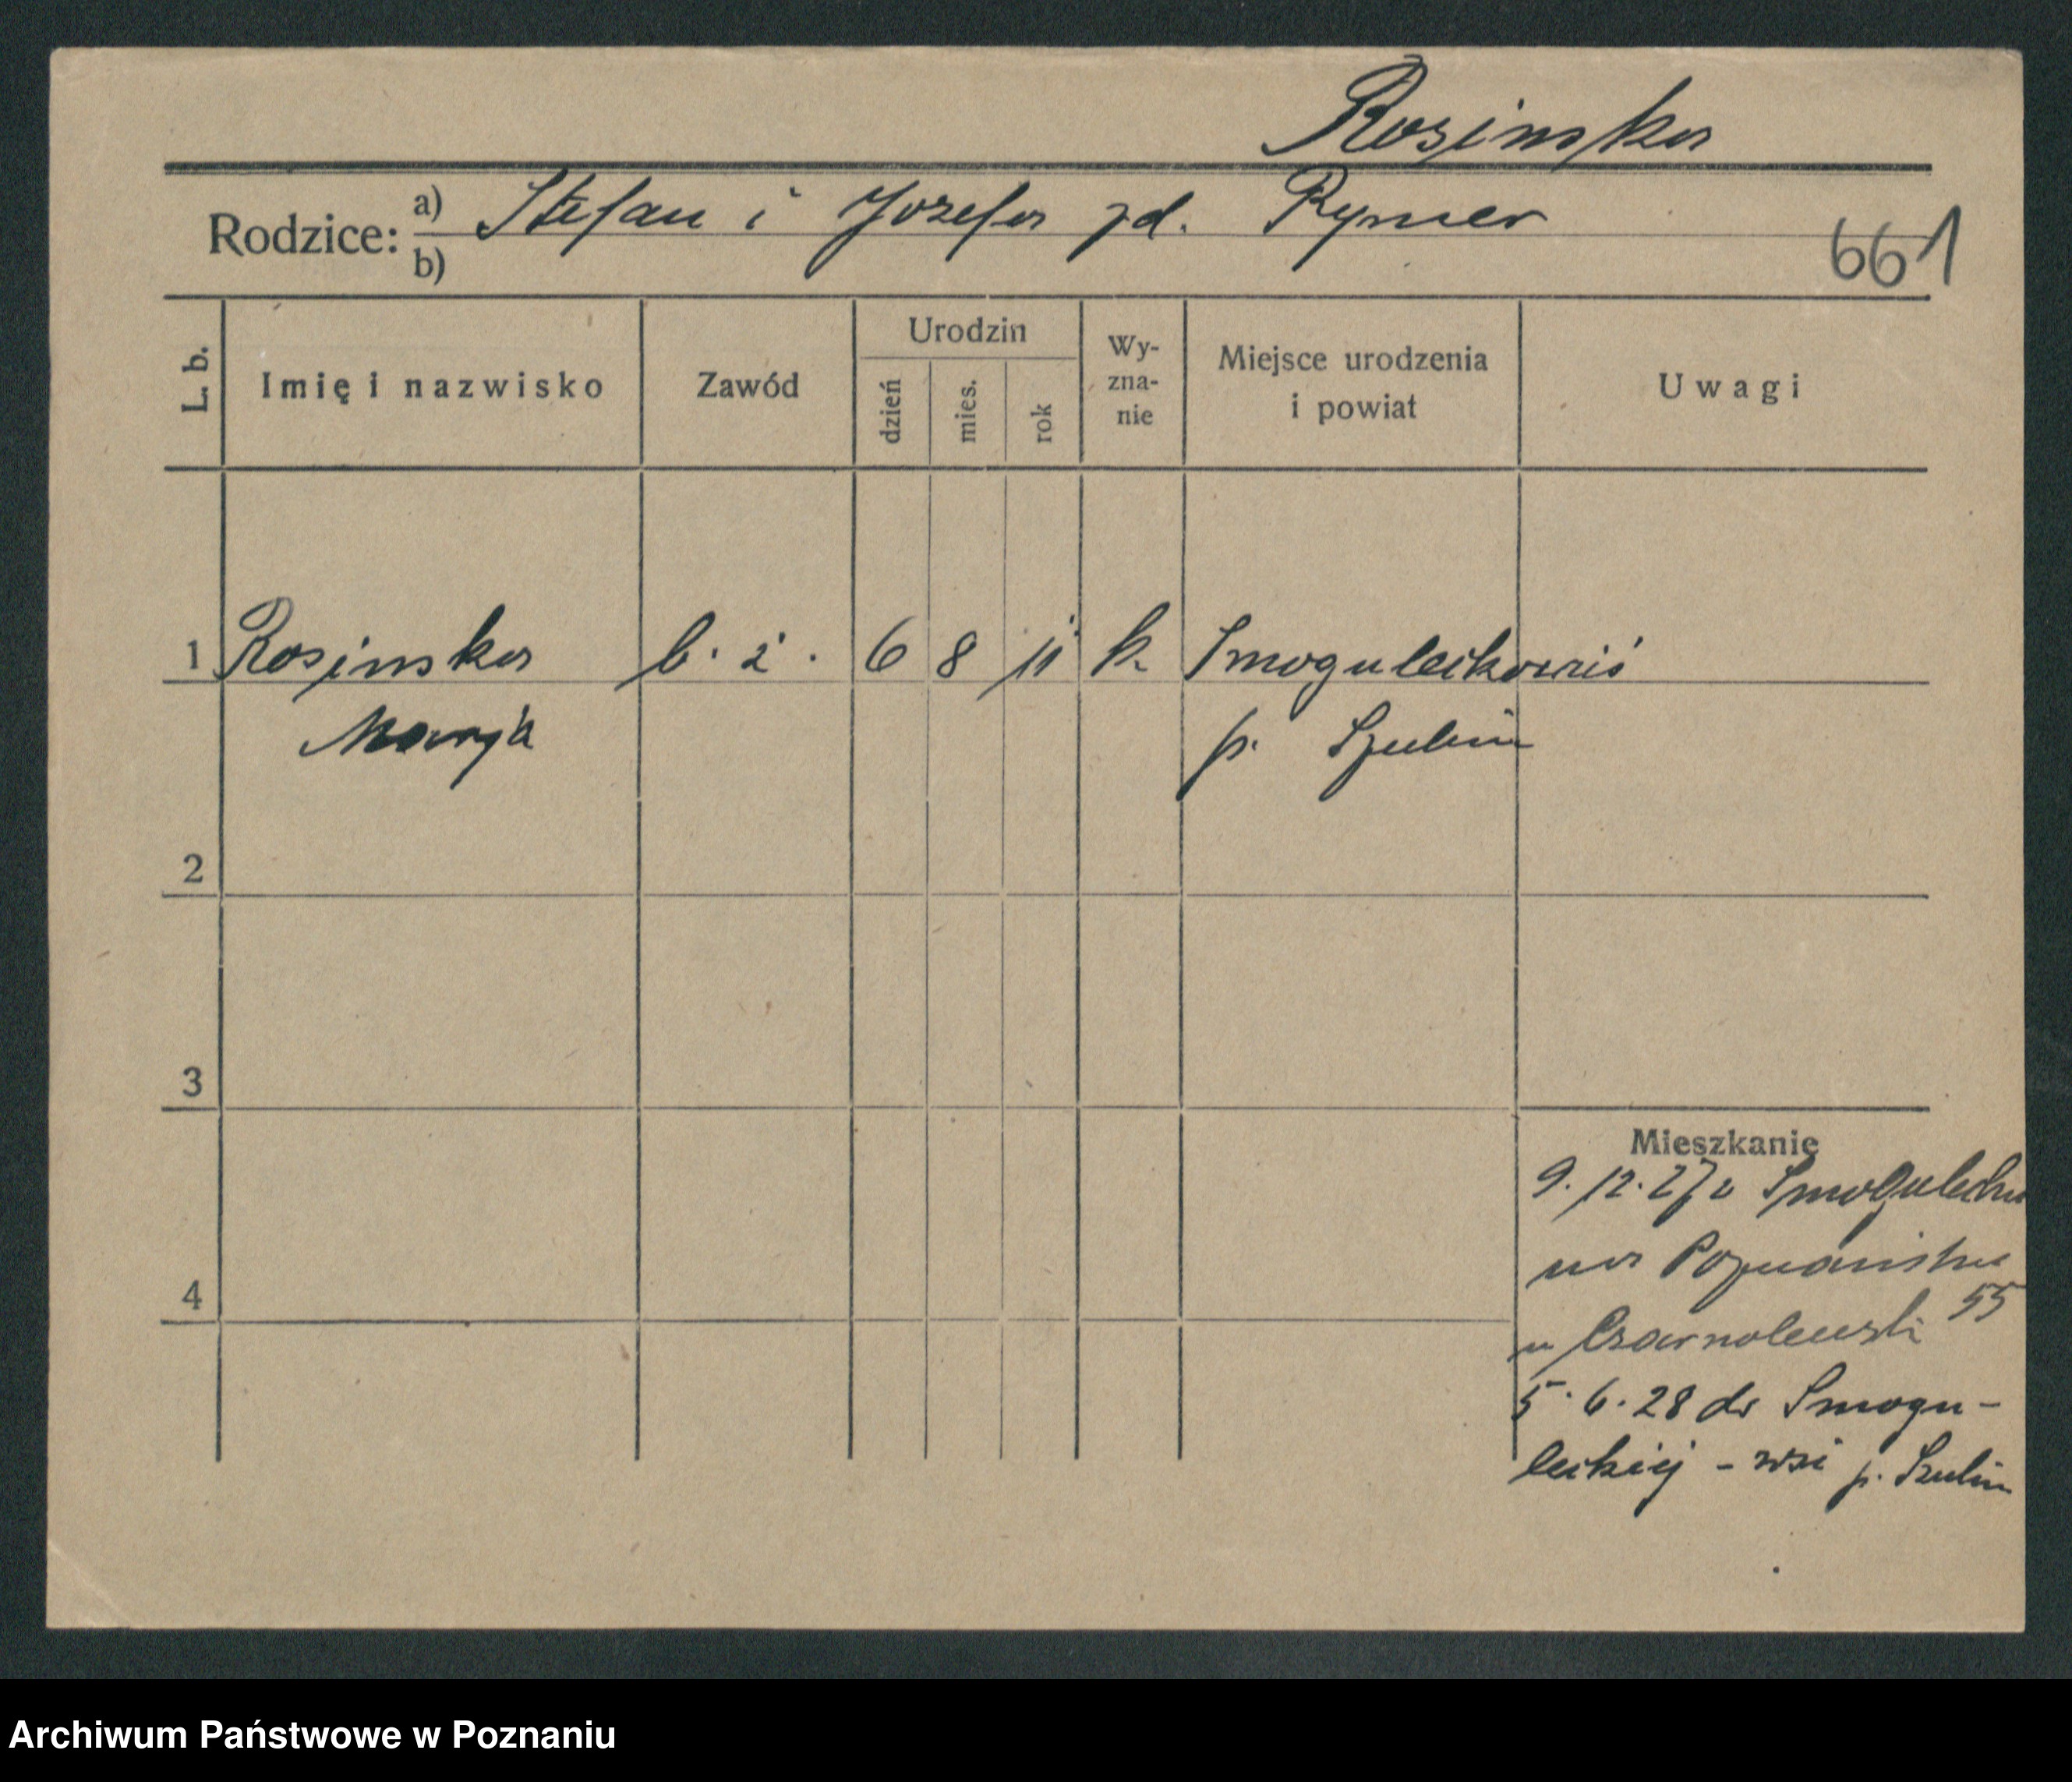 Rosinska
Rodzice: a) Stefan i Jozefa zd. Rymer
b)
661
L. b. Imię i nazwisko Zawód Urodzin dzień mies. rok Wy-zna-nie Miejsce urodzenia i powiat Uwagi
1 Rosinska b. z. 6 8 11 k. Smoguleckawieś
Marja p. Szubin
2
3
4
Mieszkanie
9. 12. 27 z Smogulechna
55
u Czarnolewski
5. 6. 28 do Smogu-
leckiej - wsi p. Szubin
Archiwum Państwowe w Poznaniu